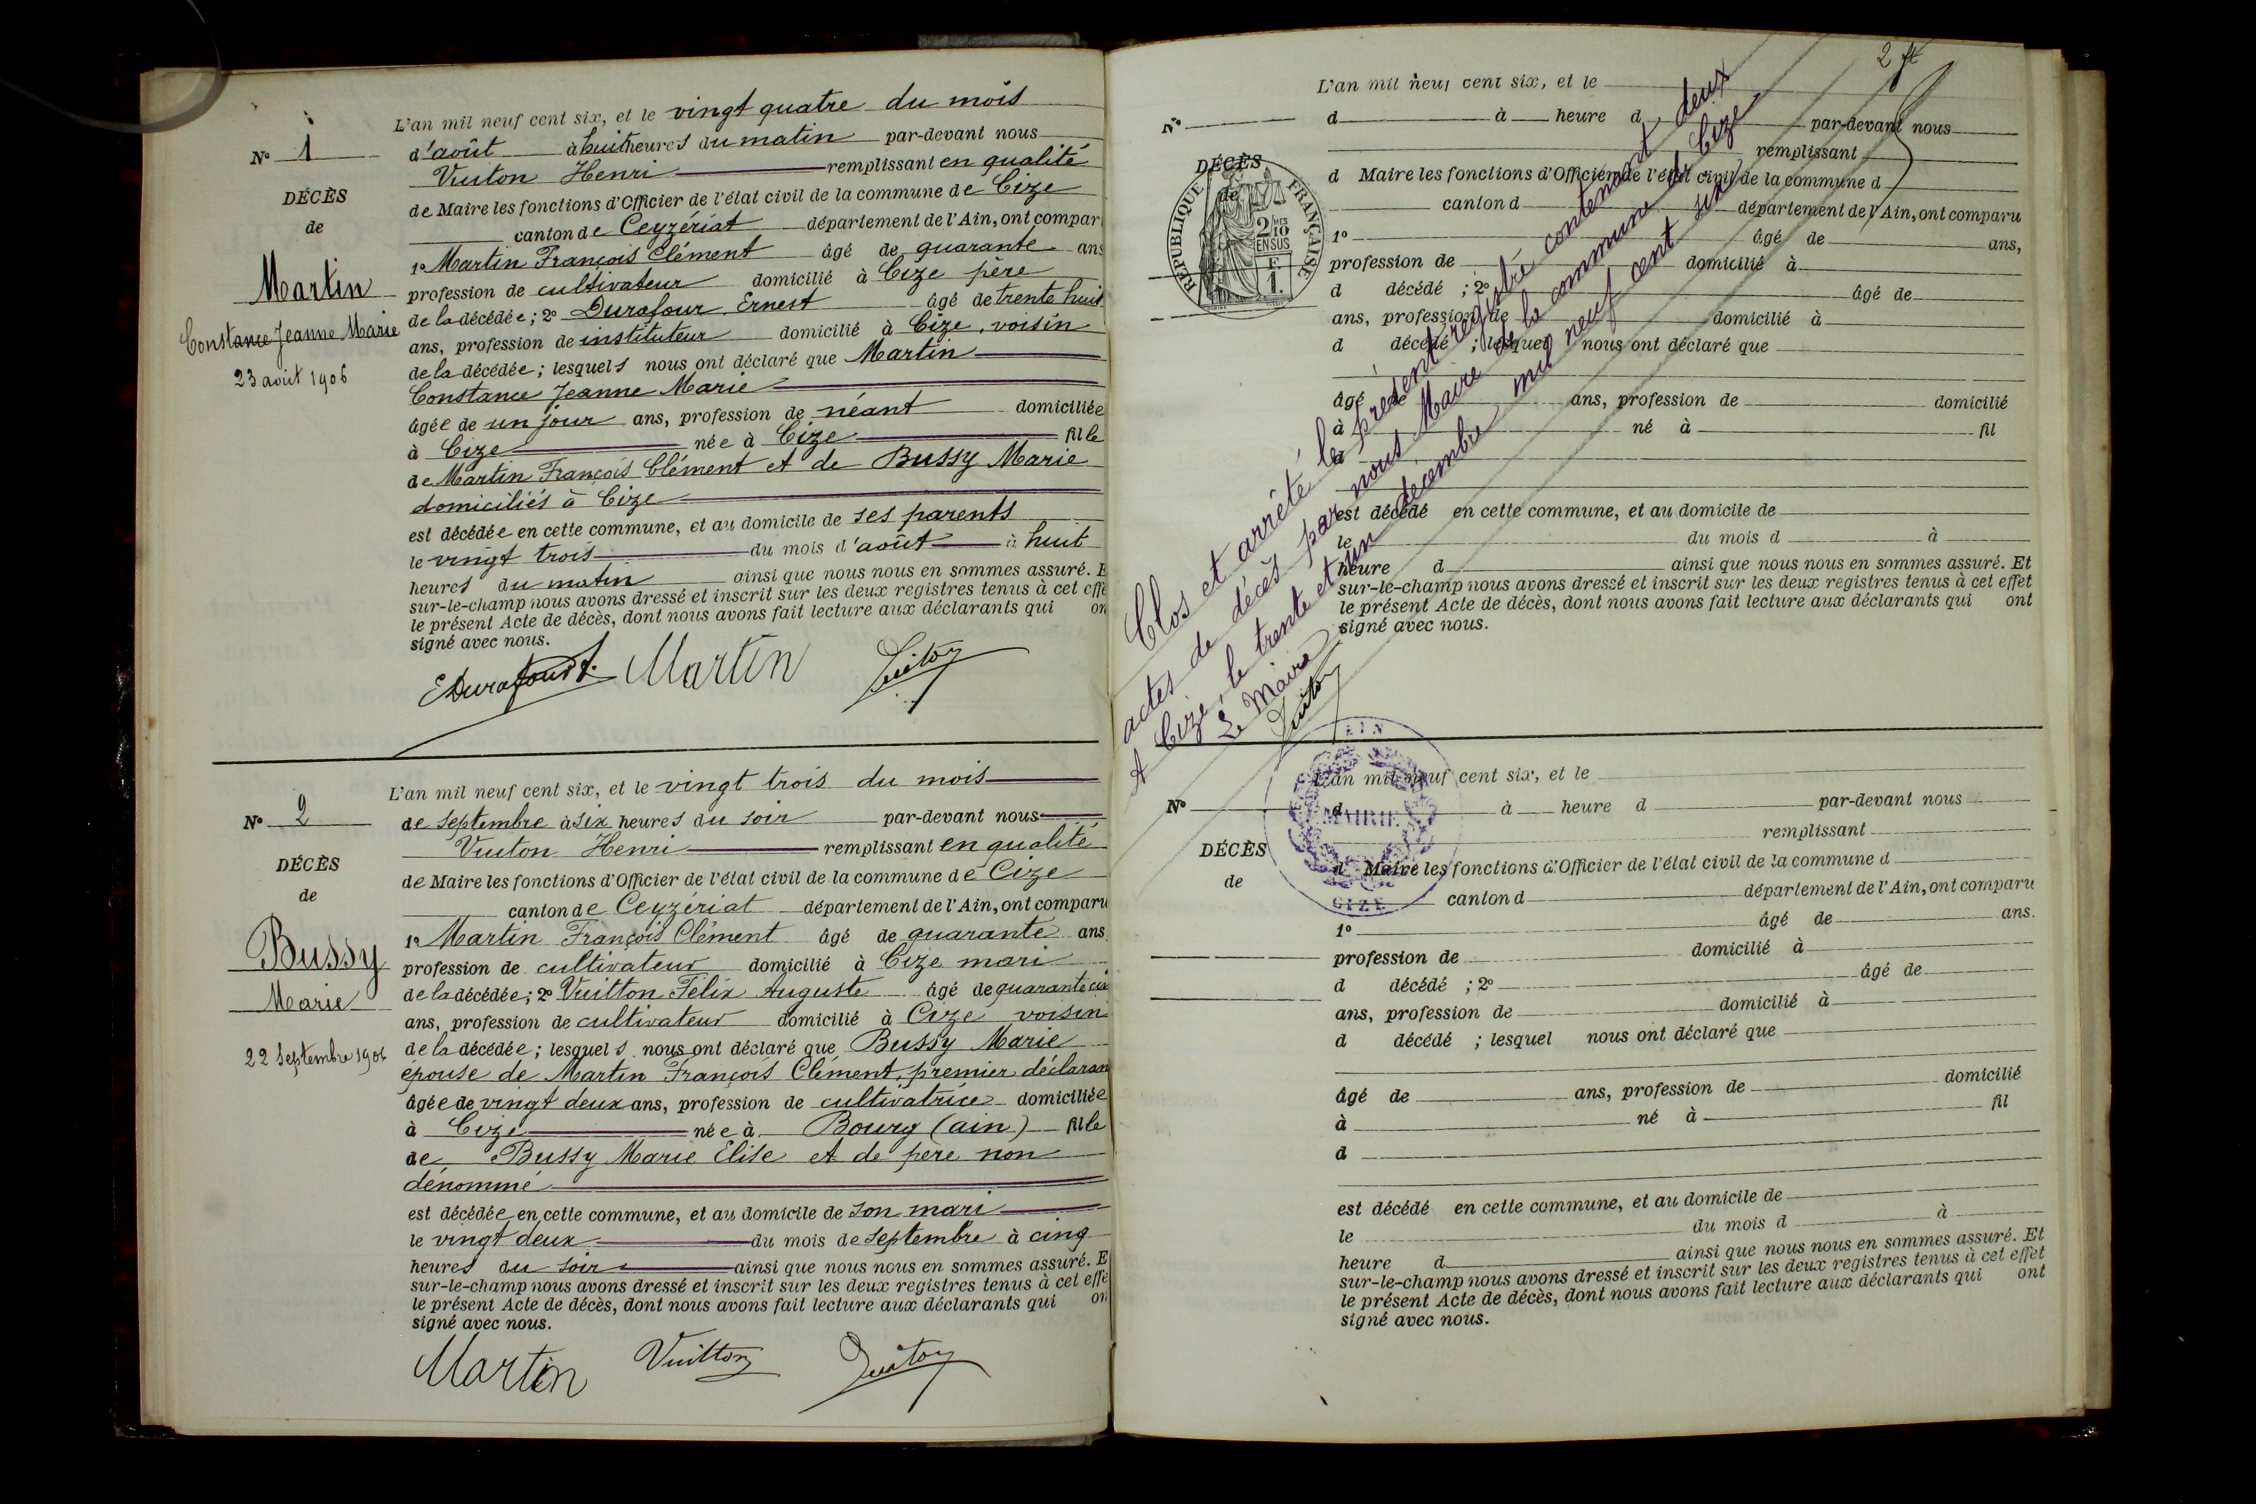 L'an mil neuf cent six, et le vingt quatre du mois
N° 1
d'août à huit heures du matin par-devant nous
Vuiton Henri remplissant en qualité
DÉCÈS
de Maire les fonctions d'Officier de l'état civil de la commune de Cize
de
canton de Ceyzériat département de l'Ain, ont compar
1° Martin François Clément âgé de quarante ans
Martin
profession de cultivateur domicilié à Cize père
de la décédée ; 2° Durafour Ernest âgé de trente huit
Constance Jeanne Marie
ans, profession de instituteur domicilié à Cize, voisin
23 août 1906
de la décédée ; lesquels nous ont déclaré que Martin
Constance Jeanne Marie
âgée de un jour ans, profession de néant domiciliée
à Cize née à Cize fille
de Martin François Clément et de Bussy Marie
domiciliés à Cize
est décédée en cette commune, et au domicile de ses parents
le vingt trois du mois d'août à huit
heures du matin ainsi que nous nous en sommes assuré. E
sur-le-champ nous avons dressé et inscrit sur les deux registres tenus à cet effe
le présent Acte de décès, dont nous avons fait lecture aux déclarants qui on
signé avec nous.
EDurafour Martin Vuiton
L'an mil neuf cent six, et le vingt trois du mois
N° 2
de septembre à six heures du soir par-devant nous
Vuiton Henri remplissant en qualité
DÉCÈS
de Maire les fonctions d'Officier de l'état civil de la commune de Cize
de
canton de Ceyzériat département de l'Ain, ont comparu
Bussy
1° Martin François Clément âgé de quarante ans.
profession de cultivateur domicilié à Cize mari
Marie
de la décédée ; 2° Vuitton Felix Auguste âgé de quarante
ans, profession de cultivateur domicilié à Cize voisin
22 Septembre 1906
de la décédée ; lesquels nous ont déclaré que Bussy Marie
épouse de Martin François Clément, premier déclaran
âgée de vingt deux ans, profession de cultivatrice domiciliée
à Cize née à Bourg (ain) fille
de Bussy Marie Elise et de père non
dénommé
est décédée en cette commune, et au domicile de son mari
le vingt deux du mois de septembre à cinq
heures du soir ainsi que nous nous en sommes assuré. E
sur-le-champ nous avons dressé et inscrit sur les deux registres tenus à cet effe
le présent Acte de décès, dont nous avons fait lecture aux déclarants qui on
signé avec nous.
Martin Vuitton Vuiton
L'an mil neuf cent six, et le
N°
d à heure d par-devant nous
remplissant
DÉCÈS
d Maire les fonctions d'Officier de l'état civil de la commune d
de
canton d département de l'Ain, ont comparu
RÉPUBLIQUE FRANÇAISE
2/10
EN SUS
F.
1.
1° âgé de ans,
profession de domicilié à
d décédé ; 2° âgé de
ans, profession de domicilié à
d décédé ; lesquel nous ont déclaré que
âgé de ans, profession de domicilié
à né à fil
d
est décédé en cette commune, et au domicile de
le du mois d à
heure d ainsi que nous nous en sommes assuré. Et
sur-le-champ nous avons dressé et inscrit sur les deux registres tenus à cet effet
le présent Acte de décès, dont nous avons fait lecture aux déclarants qui ont
signé avec nous.
Clos et arrêté le présent registre contenant deux
actes de décès par nous Maire de la commune de Cize
A Cize, le trente et un décembre mil neuf cent six
Le Maire
Vuiton
AIN
MAIRIE
CIZE
L'an mil neuf cent six, et le
N°
d à heure d par-devant nous
remplissant
DÉCÈS
d Maire les fonctions d'Officier de l'état civil de la commune d
de
canton d département de l'Ain, ont comparu
1° âgé de ans.
profession de domicilié à
d décédé ; 2° âgé de
ans, profession de domicilié à
d décédé ; lesquel nous ont déclaré que
âgé de ans, profession de domicilié
à né à fil
d
est décédé en cette commune, et au domicile de
le du mois d à
heure d ainsi que nous nous en sommes assuré. Et
sur-le-champ nous avons dressé et inscrit sur les deux registres tenus à cet effet
le présent Acte de décès, dont nous avons fait lecture aux déclarants qui ont
signé avec nous.